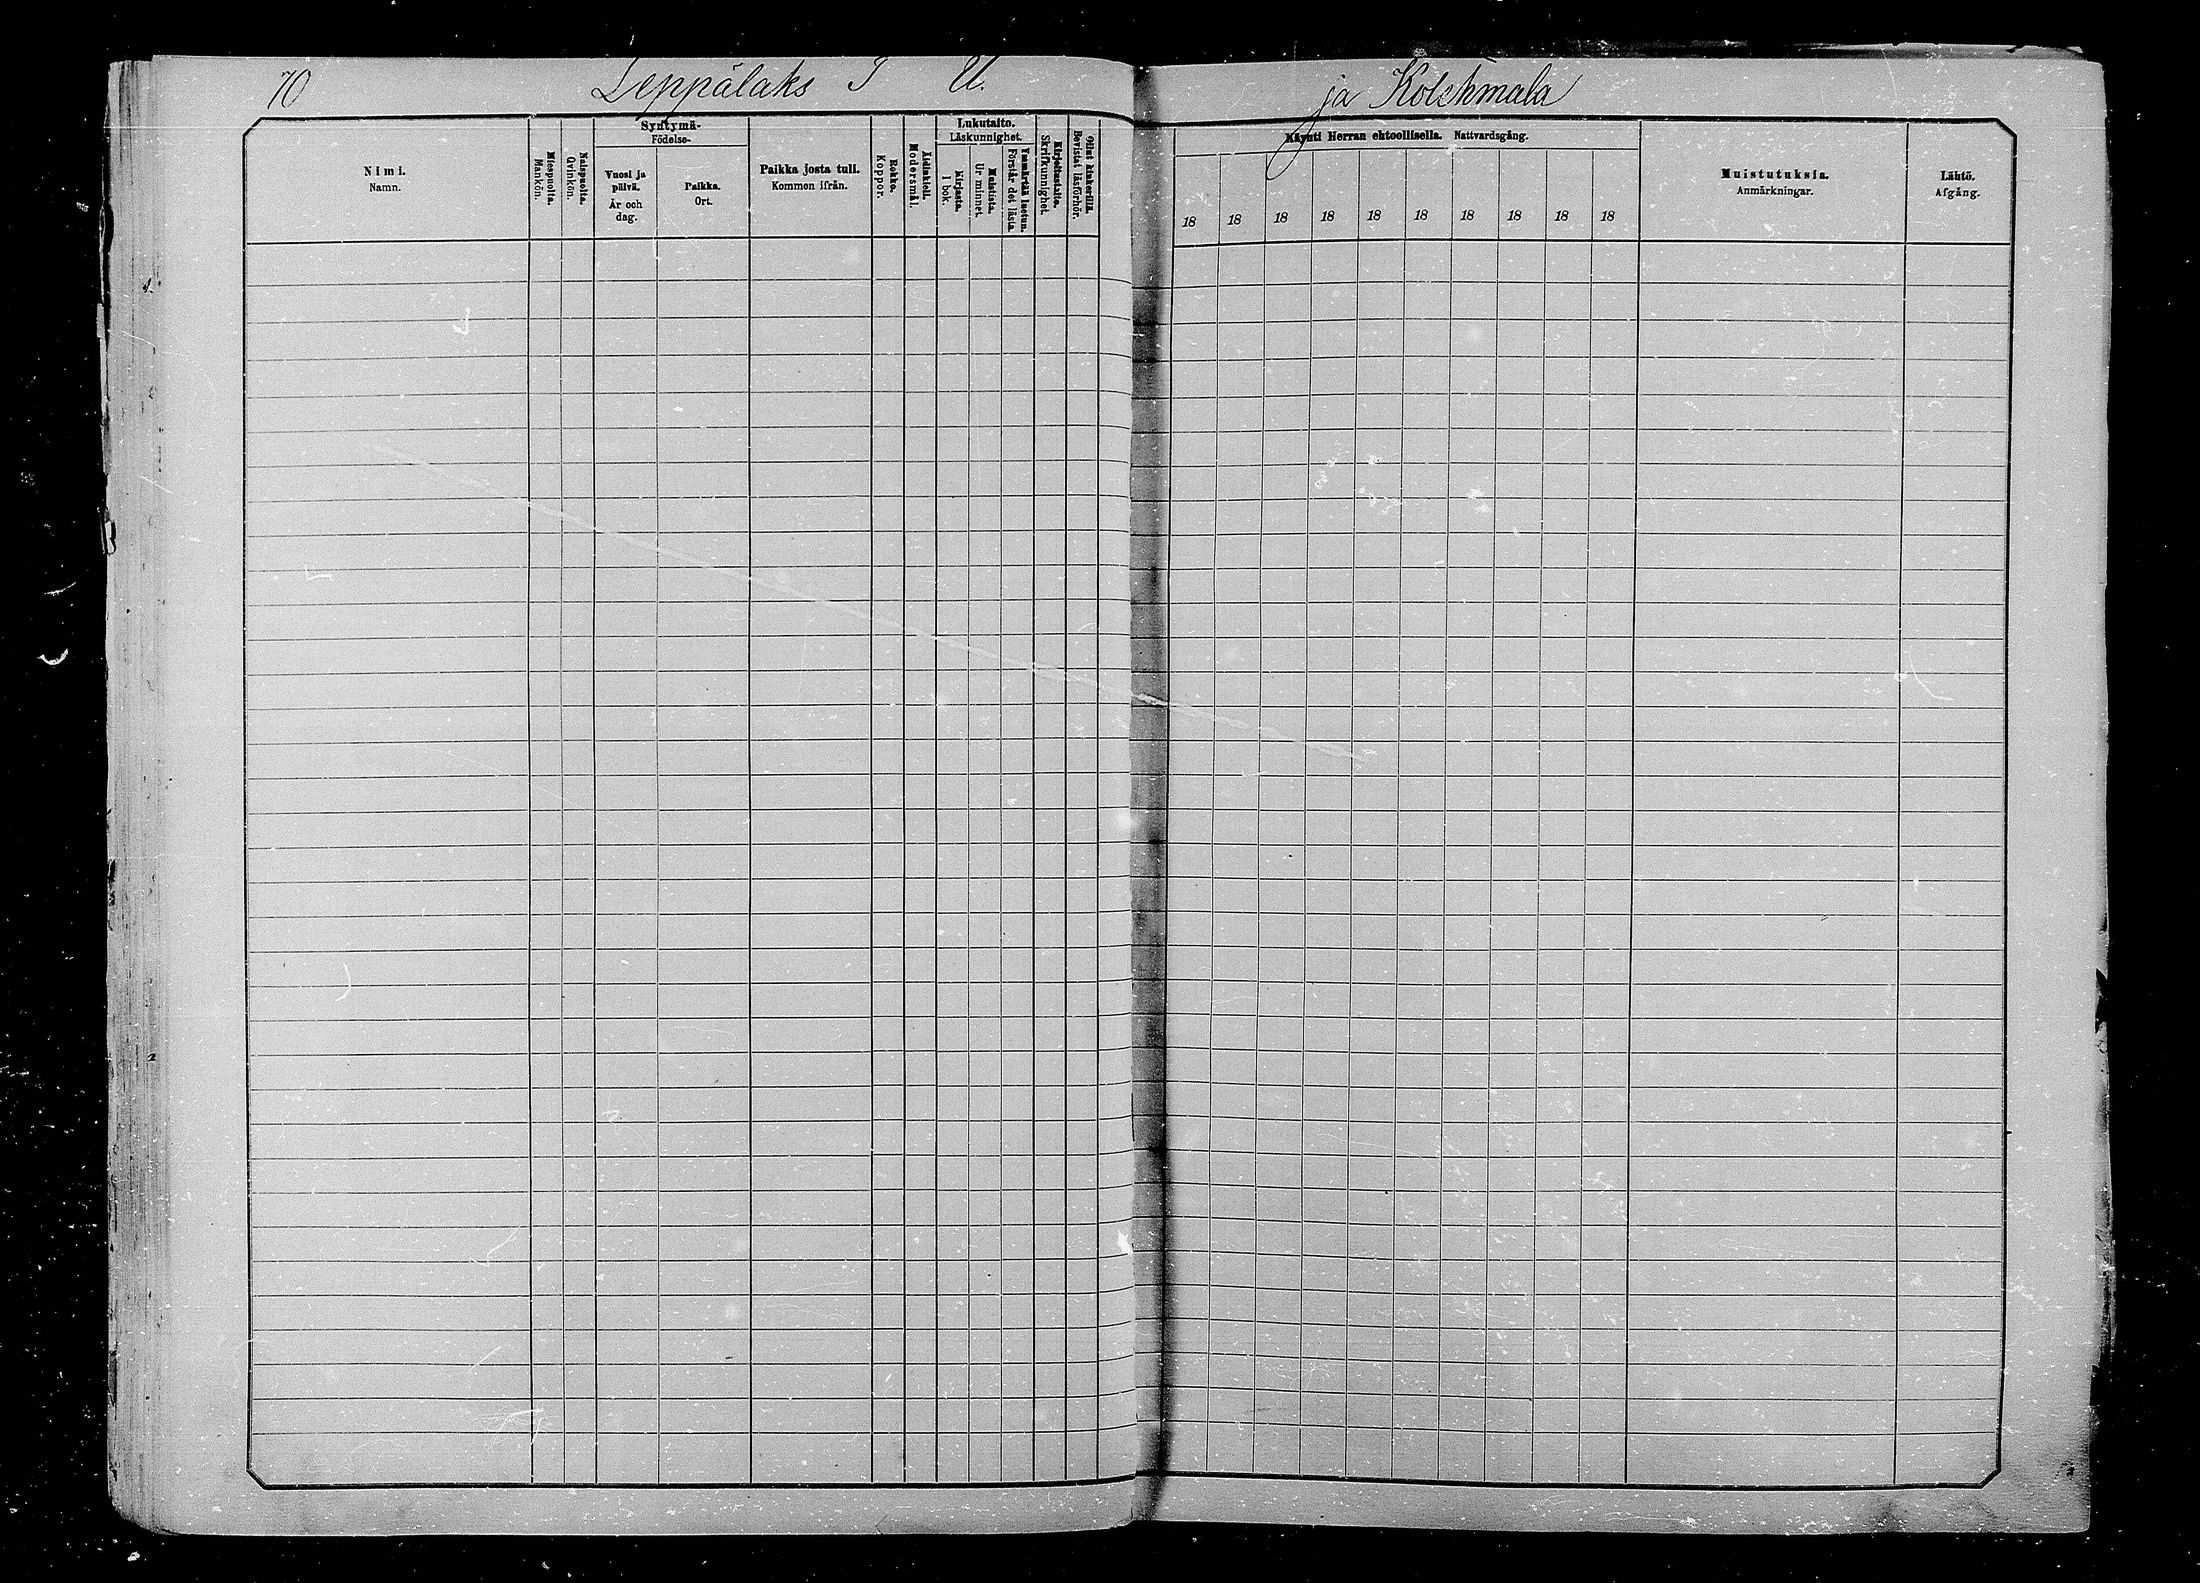 70 Leppälaks I U. ja Kolehmala
Nimi.
Namn.
Miespuolia.
Mankön.
Naispuolia.
Qvinkön.
Syntymä-
Födelse-
Vuosi ja päivä.
År och dag.
Paikka.
Ort.
Paikka josta tuli.
Kommen ifrån.
Rokko.
Koppor.
Äidinkieli.
Modersmål.
Lukutaito.
Läskunnighet.
Kirjasta.
I bok.
Muistista.
Ur minnet.
Ymmärtää luetun.
Förstår det lästa.
Kirjoitustaito.
Skrifkunnighet.
Ollut kinkerillä.
Bevistat läsförhör.
Käynti Herran ehtoollisella. Nattvardsgång.
18 18 18 18 18 18 18 18 18 18
Muistutuksia.
Anmärkningar.
Lähtö.
Afgång.